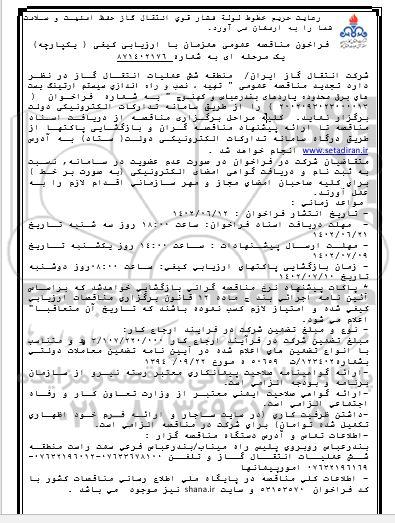 رعایت حریم خطوط لوله فشار قوی انتقال گاز حفظ امنیت و سلامت
شما را به ارمغان می آورد.
فراخوان مناقصه عمومی همزمان با ارزیابی کیفی ( یکپارچه)
یک مرحله ای به شماره ۸۷۱۴۰۲۱۷۶
شرکت انتقال گاز ایران/ منطقه شش عملیات انتقال گاز در نظر
دارد تجدید مناقصه عمومی " تهیه ، نصب و راه اندازی سیستم ارتینگ پست
های برق محدوده یاردهای بندرعباس و کهنوج " به شماره فراخوان (
) را از طریق سامانه تدارکات الکترونیکی دولت
برگزار نماید. کلیه مراحل برگزاری مناقصه از دریافت اسناد
مناقصه تا ارائه پیشنهاد مناقصه گران و بازگشایی پاکتها از
طریق درگاه سامانه تدارکات الکترونیکی دولت( ستاد) به آدرس
www.setadiran.ir انجام خواهد شد .
متقاضیان شرکت در فراخوان در صورت عدم عضویت در سامانه، نسبت
به ثبت نام و دریافت گواهی امضای الکترونیکی (به صورت بر خط )
برای کلیه صاحبان امضای مجاز و مهر سازمانی اقدام لازم را به
عمل آورند.
مواعد زمانی :
- تاریخ انتشار فراخوان : ۱۴۰۲/۰۶/۱۲
- مهلت دریافت اسناد فراخوان: ساعت ۱۸:۰۰ روز سه شنبه تاریخ
۱۴۰۲/۰۶/۲۱
- مهلت ارسال پیشنهادات : ساعت ۱۴:۰۰ روز یکشنبه تاریخ
۱۴۰۲/۰۷/۰۹
- زمان بازگشایی پاکتهای ارزیابی کیفی: ساعت ۰۸:۰۰ روز دوشنبه
تاریخ ۱۴۰۲/۰۷/۱۰
* پاکات پیشنهاد نرخ مناقصه گرانی بازگشایی خواهدشد که براساس
آئین نامه اجرائی بند ج ماده ۱۲ قانون برگزاری مناقصات ارزیابی
کیفی شده و امتیاز لازم کسب نموده باشند که تاریخ آن متعاقبا"
اعلام می شود.
- نوع و مبلغ تضمین شرکت در فرایند ارجاع کار:
مبلغ تضمین شرکت در فرآیند ارجاع کار ۳/۱۰۷/۲۲۰/۰۰۰ و متناسب
با انواع تضمین های اعلام شده در آیین نامه تضمین معاملات دولتی
بشماره ۱۲۳۴۰۲/ت ۵۰۶۵۹ ه مورخ ۹۴/۰۹/۲۲
-ارائه گواهینامه صلاحیت پیمانکاری معتبر رسته نیرو از سازمان
برنامه و بودجه الزامی است.
-ارائه گواهی صلاحیت ایمنی معتبر از وزارت تعاون کار و رفاه
اجتماعی الزامی است.
-داشتن ظرفیت کاری (در سایت ساجار و ارائه فرم خود اظهاری
تکمیل شده توامان) برای شرکت در مناقصه الزامی است.
-اطلاعات تماس و آدرس دستگاه مناقصه گزار :
بندرعباس روبروی پلیس راه میناب/بندرعباس فرعی سمت راست منطقه
شش عملیات انتقال گاز و تلفن ۰۷۶۳۳۶۷۸۱۰۰-۰۷۶۳۲۱۹۶۰۱۲-
۰۷۶۳۲۱۹۶۱۶۹ امورپیمانها
- اطلاعات کلی مناقصه در پایگاه ملی اطلاع رسانی مناقصات کشور با
کد فراخوان ۵۳۱۵۳۵۷۰ و سایت shana.ir نیز موجود می باشد .